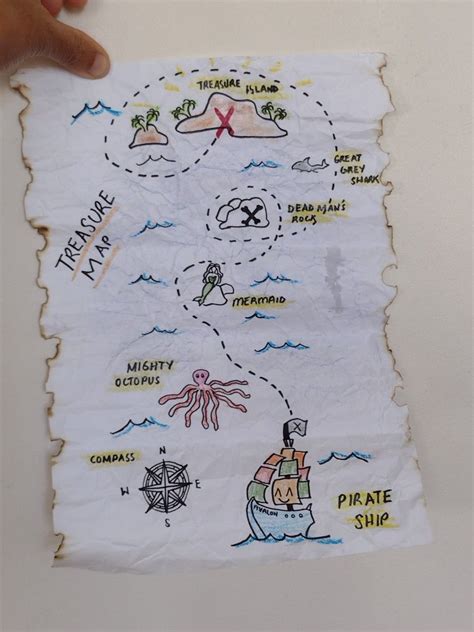 TREASURE
ISLAND
GREAT
GREY
SHARK
DEAD MAN'S
ROCK
TREASURE
MAP
MERMAID
MIGHTY
OCTOPUS
COMPASS
N
W E
S
AVALON
PIRATE
SHIP